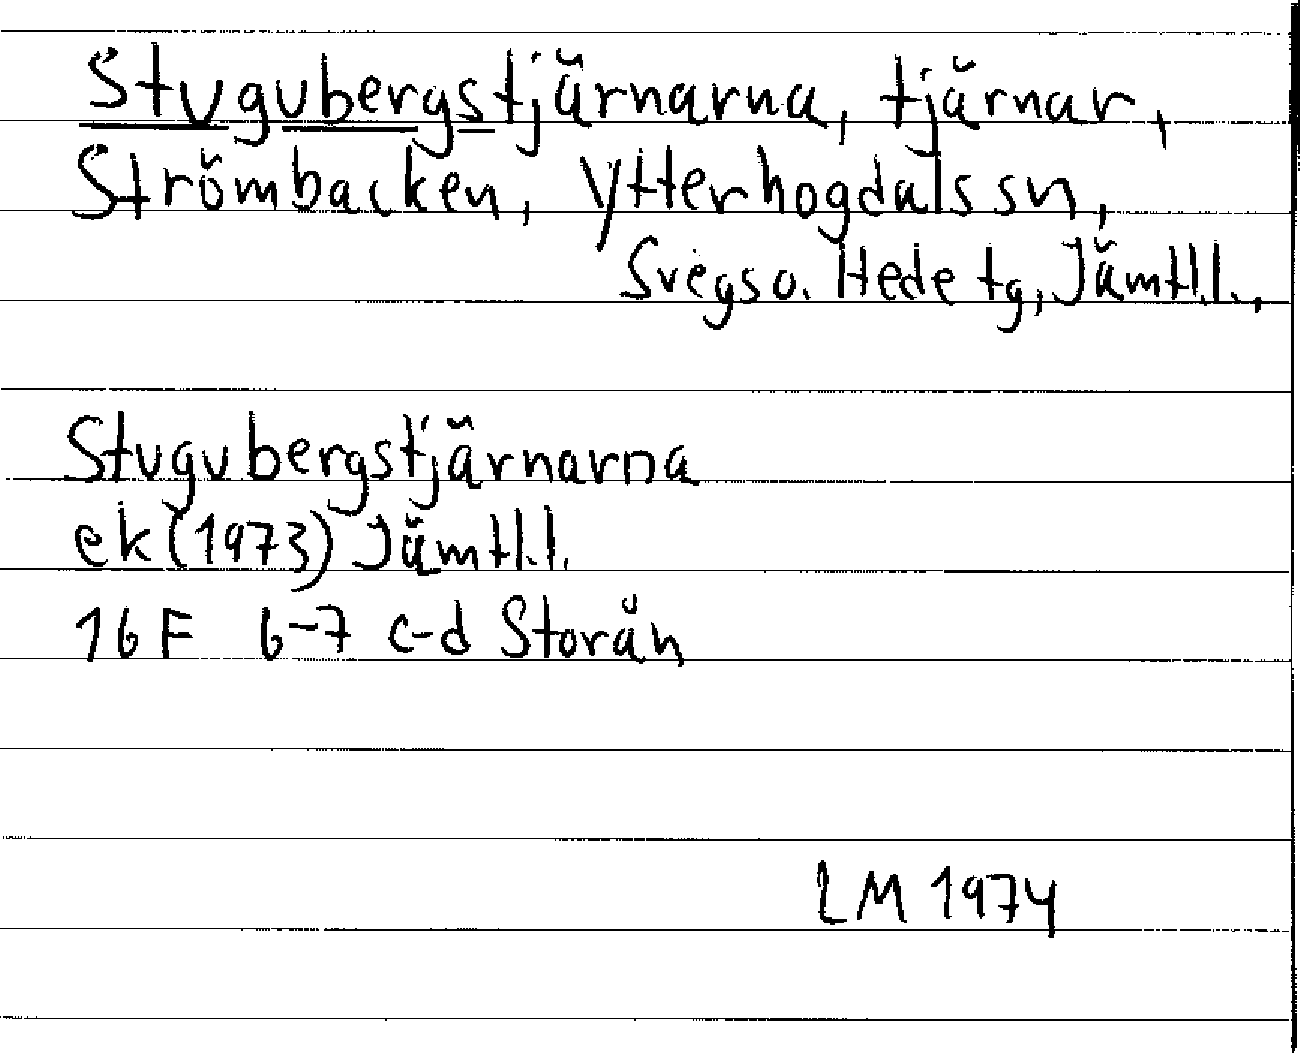 Stugubergstjärnarna, tjärnar,
Strömbacken, Ytterhogdals sn,
Svegs o. Hede tg, Jämtl.l.,
Stugubergstjärnarna
ek (1973) Jämtl.l.
16 F 6-7 c-d Storån
LM 1974